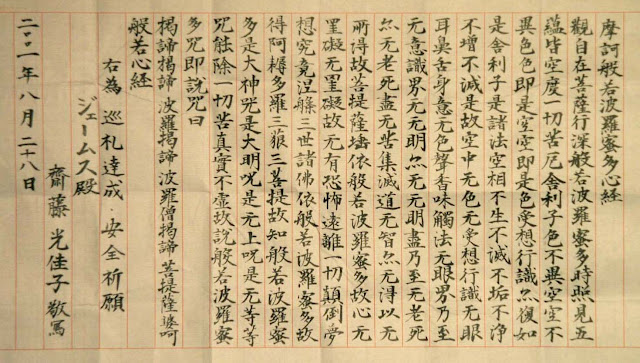 摩訶般若波羅蜜多心経
觀自在菩薩行深般若波羅蜜多時照見五
蘊皆空度一切苦厄舎利子色不異空空不
異色色即是空空即是色受想行識亦復如
是舎利子是諸法空相不生不滅不垢不浄
不增不減是故空中无色无受想行識无眼
耳鼻舌身意无色聲香味觸法无眼界乃至
无意識界无无明亦无无明盡乃至无老死
亦无老死盡无苦集滅道无智亦无得以无
所得故菩提薩埵依般若波羅蜜多故心无
罣礙无罣礙故无有恐怖遠離一切顛倒夢
想究竟涅槃三世諸佛依般若波羅蜜多故
得阿耨多羅三藐三菩提故知般若波羅蜜
多是大神咒是大明咒是无上咒是无等等
咒能除一切苦真實不虛故說般若波羅蜜
多咒即說咒曰
揭諦揭諦波羅揭諦波羅僧揭諦菩提薩婆訶
般若心経
右為 巡礼達成・安全祈願
ジェームス殿
齋藤光佳子 敬寫
二〇〇一年八月二十八日